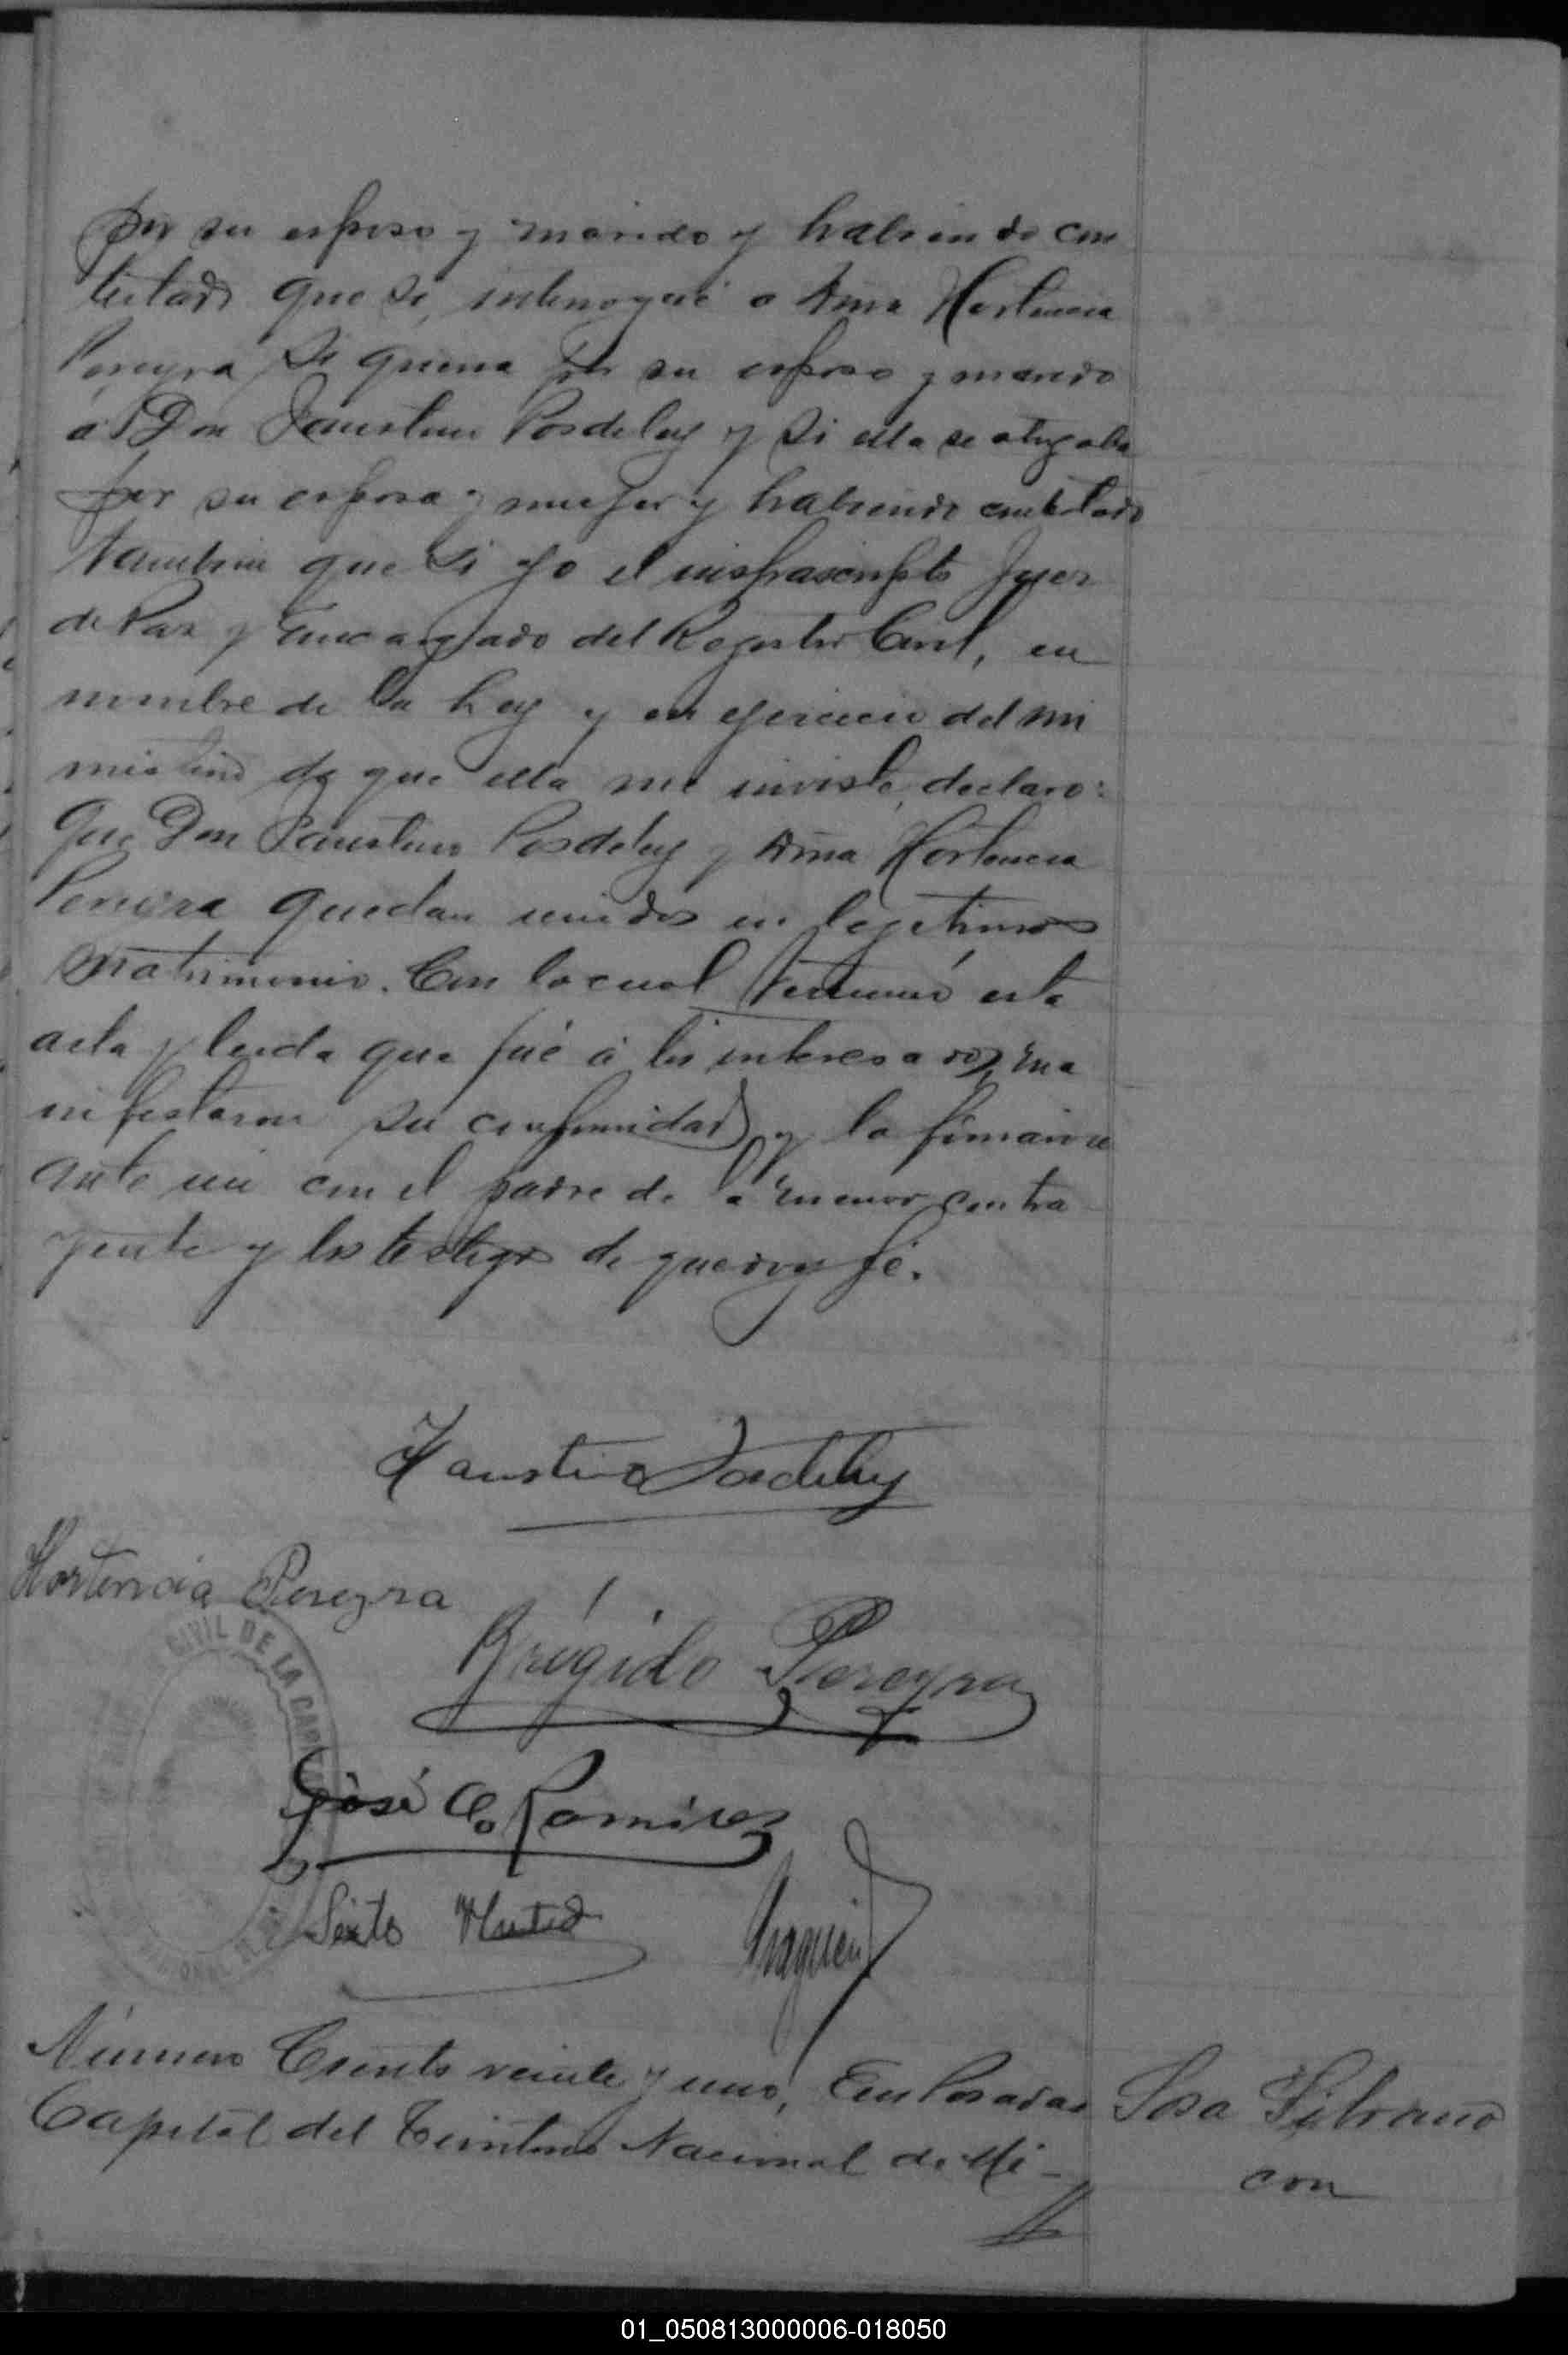 por su esposo y marido y habiendo con
testado que si, interrogué a doña Hortencia
Pereyra si queria por su esposo y marido
a Don Faustino Posdeley y si ella se otorgaba
por su esposa y mujer y habiendo contestado
tambien que si yo el infrascripto Juez
de Paz y Encargado del Registro Civil, en
nombre de la Ley y en ejercicio del mi
nisterio de que ella me inviste, declaro:
Que Don Faustino Posdeley y doña Hortencia
Pereyra quedan unidos en legetimos
matrimonio. Con lo cual terminó esta
acta y leida que fué á los interesados, ma
nifestaron su conformidad y la firmaron
ante mi con el padre de la menor contra
yente y los testigos de que doy fé.
Faustino Posdeley
Hortencia Pereyra
CIVIL DE LA CAPITAL
Brígido Pereyra
José C. Ramírez
Sixto
Número Ciento veinte y uno, En Posadas
Capital del Territorio Nacional de Mi-
Sosa Silvano
con
01_050813000006-018050